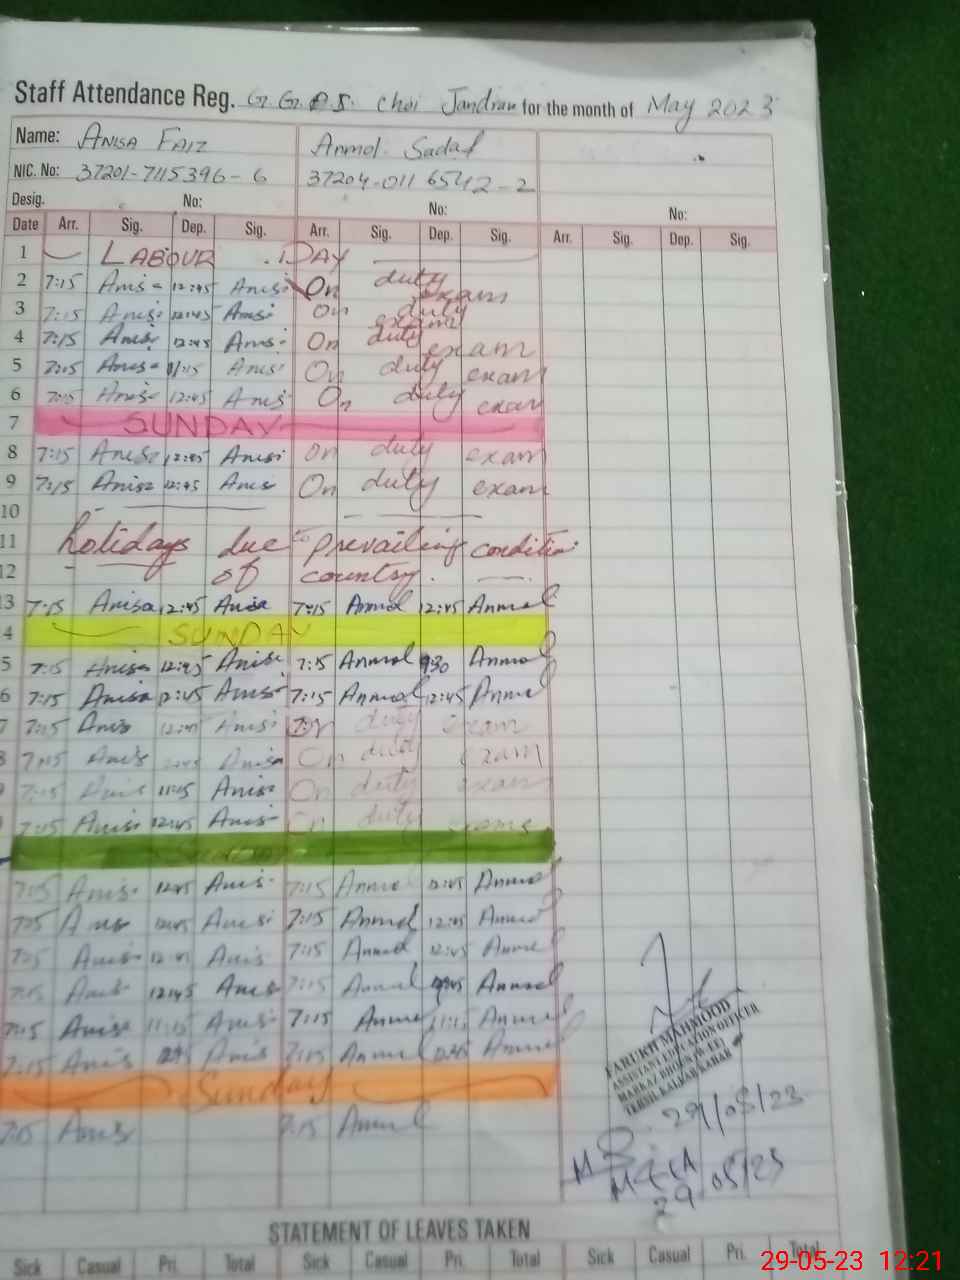 Staff Attendance Reg. G.G.P.S. Choi Jandran for the month of May 2023
Name: ANISA FAIZ Anmol Sadaf
NIC. No: 37201-7115396-6 37204-0116542-2
Desig. No: No: No:
Date Arr. Sig. Dep. Sig. Arr. Sig. Dep. Sig. Arr. Sig. Dep. Sig.
1 LABOUR DAY
2 7:15 Anisa 12:45 Anisa On duty exam
3 7:15 Anisa 12:45 Anisa On duty exam
4 7:15 Anisa 12:45 Anisa On duty exam
5 7:15 Anisa 11:15 Anisa On duty exam
6 7:15 Anisa 12:45 Anisa On duty exam
7 SUNDAY
8 7:15 Anisa 12:45 Anisa On duty exam
9 7:15 Anisa 12:45 Anisa On duty exam
10
11 holidays due to prevailing condition
12 of country.
13 7:15 Anisa 12:45 Anisa 7:15 Anmol 12:45 Anmol
4 SUNDAY
5 7:15 Anisa 12:45 Anisa 7:15 Anmol 9:30 Anmol
6 7:15 Anisa 12:45 Anisa 7:15 Anmol 12:45 Anmol
7 7:15 Anisa 12:45 Anisa On duty exam
8 7:15 Anisa Anisa On duty exam
7:15 Anisa 11:15 Anisa On duty exam
7:15 Anisa 12:45 Anisa On duty exams
Sunday
7:15 Anisa 12:45 Anisa 7:15 Anmol 12:45 Anmol
7:15 Anisa 12:45 Anisa 7:15 Anmol 12:45 Anmol
7:15 Anisa 12:45 Anisa 7:15 Anmol 12:45 Anmol
7:15 Anisa 12:45 Anisa 7:15 Anmol Anmol
7:15 Anisa 11:15 Anisa 7:15 Anmol 11:15 Anmol
7:15 Anisa Anisa 7:15 Anmol 12:45 Anmol
Sunday
7:15 Anisa 7:15 Anmol
FARUKH MAHMOOD
ASSISTANT EDUCATION OFFICER
TEHSIL KALLAR KAHAR
29/05/23
MEA
29/05/23
STATEMENT OF LEAVES TAKEN
Sick Casual Pri. Total Sick Casual Pri. Total Sick Casual Pri. Total
29-05-23 12:21